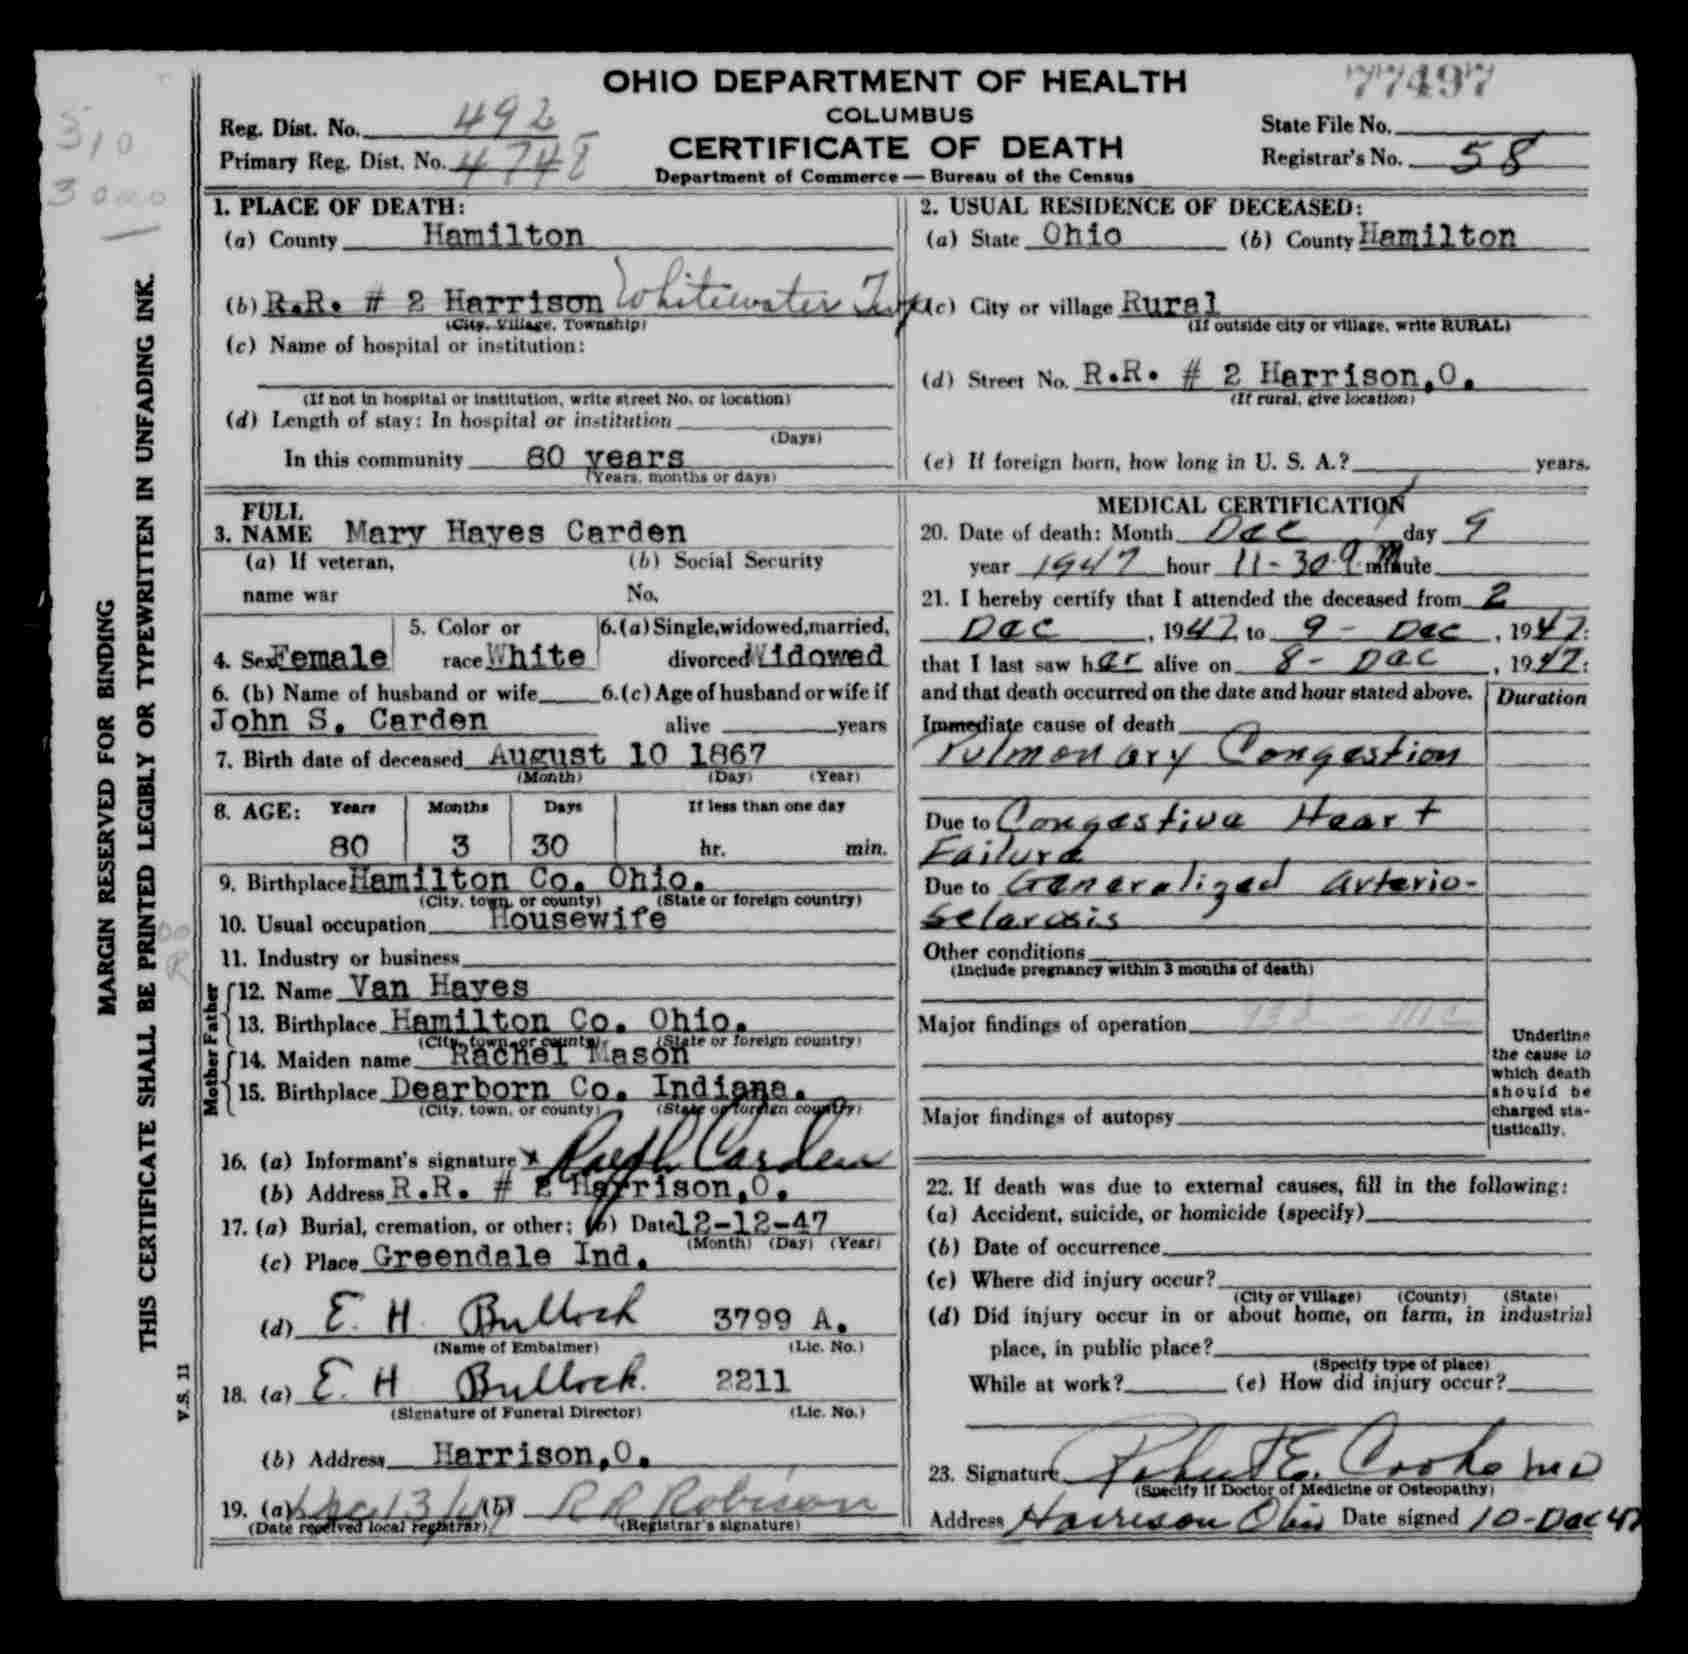 OHIO DEPARTMENT OF HEALTH
77497
COLUMBUS
Reg. Dist. No. 492
State File No.
CERTIFICATE OF DEATH
Primary Reg. Dist. No. 4748
Registrar's No. 58
Department of Commerce — Bureau of the Census
510
3000
MARGIN RESERVED FOR BINDING
THIS CERTIFICATE SHALL BE PRINTED LEGIBLY OR TYPEWRITTEN IN UNFADING INK.
V.S. 11
1. PLACE OF DEATH:
(a) County Hamilton
(b) R.R. # 2 Harrison Whitewater Twp
(City, Village, Township)
(c) Name of hospital or institution:
(If not in hospital or institution, write street No. or location)
(d) Length of stay: In hospital or institution
(Days)
In this community 80 years
(Years, months or days)
2. USUAL RESIDENCE OF DECEASED:
(a) State Ohio (b) County Hamilton
(c) City or village Rural
(If outside city or village, write RURAL)
(d) Street No. R.R. # 2 Harrison,O.
(If rural, give location)
(e) If foreign born, how long in U. S. A.? years.
FULL
3. NAME Mary Hayes Carden
(a) If veteran, (b) Social Security
name war No.
4. Sex Female
5. Color or
race White
6.(a) Single,widowed,married,
divorced Widowed
6. (b) Name of husband or wife 6.(c) Age of husband or wife if
John S. Carden alive years
7. Birth date of deceased August 10 1867
(Month) (Day) (Year)
8. AGE: Years Months Days If less than one day
80 3 30 hr. min.
9. Birthplace Hamilton Co. Ohio.
(City, town, or county) (State or foreign country)
10. Usual occupation Housewife
11. Industry or business
Father
12. Name Van Hayes
13. Birthplace Hamilton Co. Ohio.
(City, town, or county) (State or foreign country)
Mother
14. Maiden name Rachel Mason
15. Birthplace Dearborn Co. Indiana.
(City, town, or county) (State or foreign country)
16. (a) Informant's signature x Ralph Carden
(b) Address R.R. # 2 Harrison,O.
17. (a) Burial, cremation, or other; (b) Date 12-12-47
(Month) (Day) (Year)
(c) Place Greendale Ind.
(d) E. H. Bullock 3799 A.
(Name of Embalmer) (Lic. No.)
18. (a) E. H Bullock. 2211
(Signature of Funeral Director) (Lic. No.)
(b) Address Harrison,O.
19. (a) Dec 13/47 (b) R R Robison
(Date received local registrar) (Registrar's signature)
MEDICAL CERTIFICATION
20. Date of death: Month Dec day 9
year 1947 hour 11-30 minute
21. I hereby certify that I attended the deceased from 2
Dec, 1947 to 9 - Dec, 1947:
that I last saw her alive on 8 - Dec, 1947:
and that death occurred on the date and hour stated above. Duration
Immediate cause of death
Pulmonary Congestion
Due to Congestive Heart
Failure
Due to Generalized Arterio-
sclerosis
Other conditions
(Include pregnancy within 3 months of death)
Major findings of operation
Major findings of autopsy
Underline
the cause to
which death
should be
charged sta-
tistically.
22. If death was due to external causes, fill in the following:
(a) Accident, suicide, or homicide (specify)
(b) Date of occurrence
(c) Where did injury occur?
(City or Village) (County) (State)
(d) Did injury occur in or about home, on farm, in industrial
place, in public place?
(Specify type of place)
While at work? (e) How did injury occur?
23. Signature Robert E. Cooke MD
(Specify if Doctor of Medicine or Osteopathy)
Address Harrison Ohio Date signed 10-Dec 47